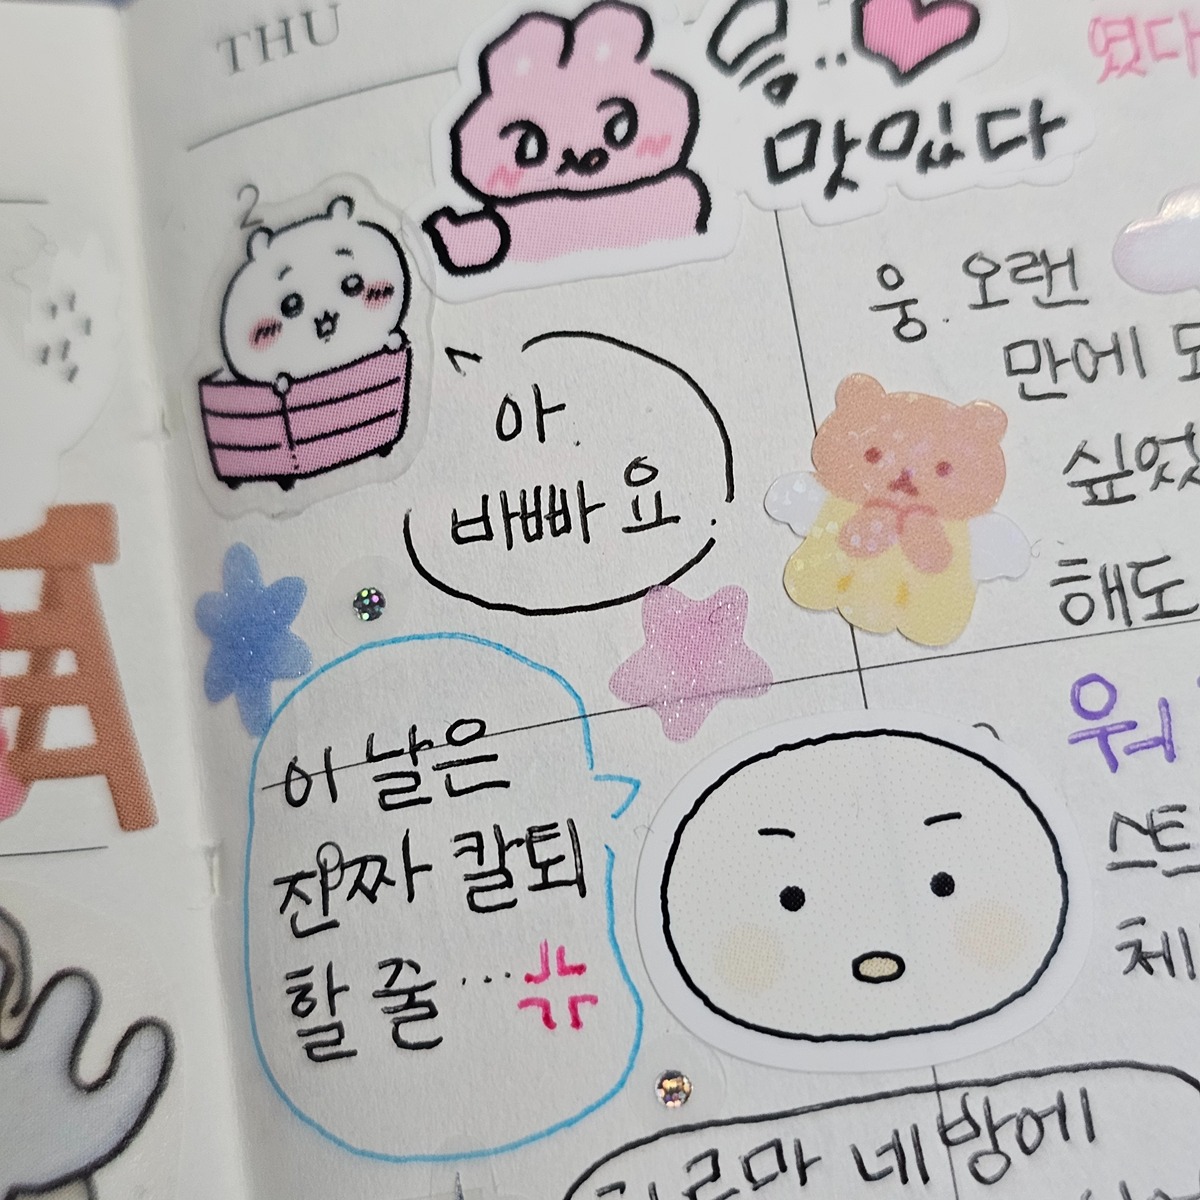 THU
2
음..
맛있다
였다
웅. 오랜
만에
싶었
해도
아.
바빠요.
이 날은
진짜 칼퇴
할 줄…
워
스트
체
네 방에